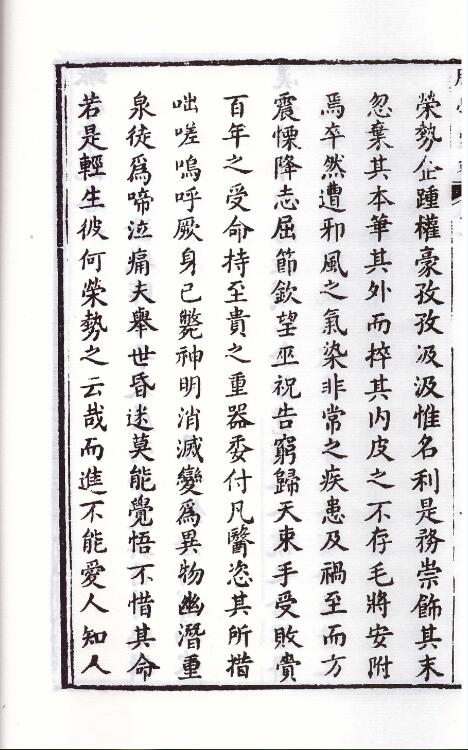 榮勢企踵權豪孜孜汲汲惟名利是務崇飾其末
忽棄其本華其外而悴其内皮之不存毛將安附
焉卒然遭邪風之氣染非常之疾患及禍至而方
震慄降志屈節欽望巫祝告窮歸天束手受敗賫
百年之受命持至貴之重器委付凡醫恣其所措
咄嗟嗚呼厥身已斃神明消滅變爲異物幽潛重
泉徒爲啼泣痛夫舉世昏迷莫能覺悟不惜其命
若是輕生彼何榮勢之云哉而進不能愛人知人